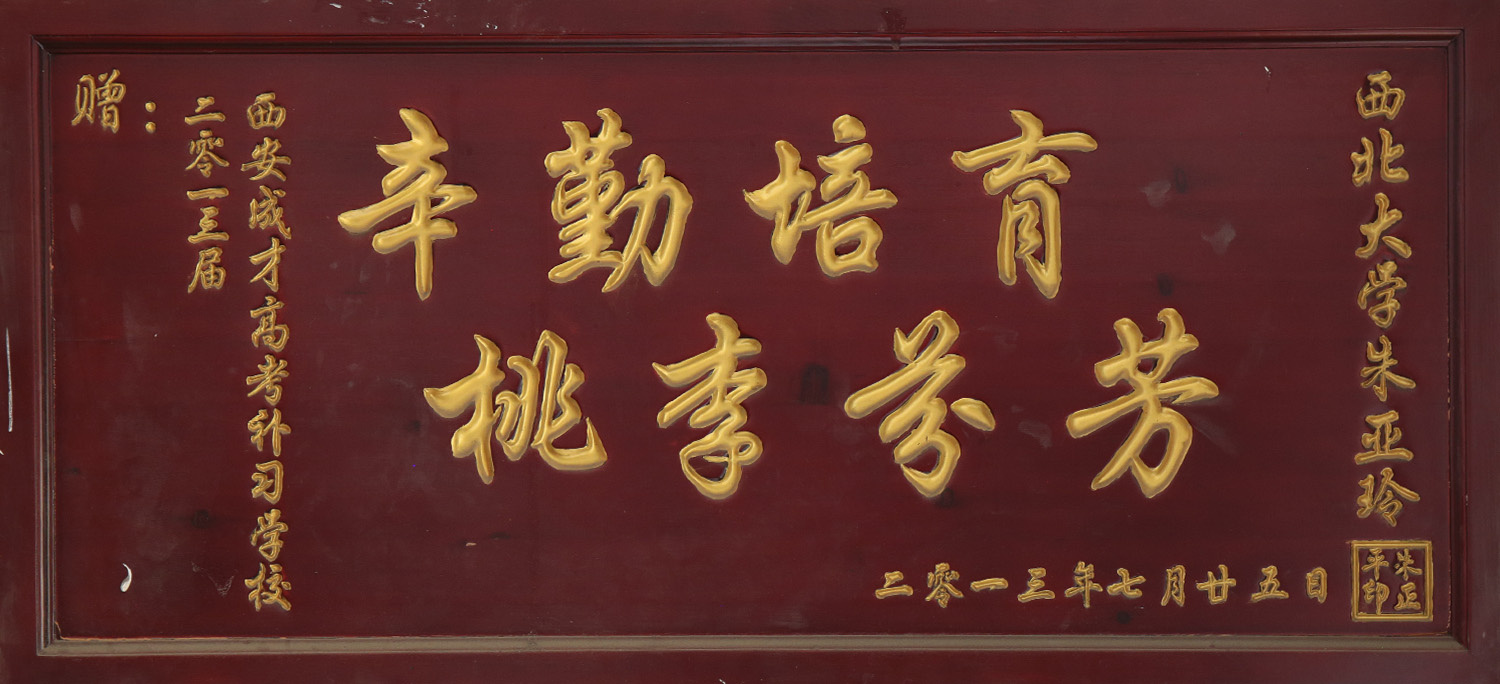 赠：
西安成才高考补习学校
二零一三届
辛勤培育
桃李芬芳
西北大学朱亚玲
二零一三年七月廿五日
朱正
平印